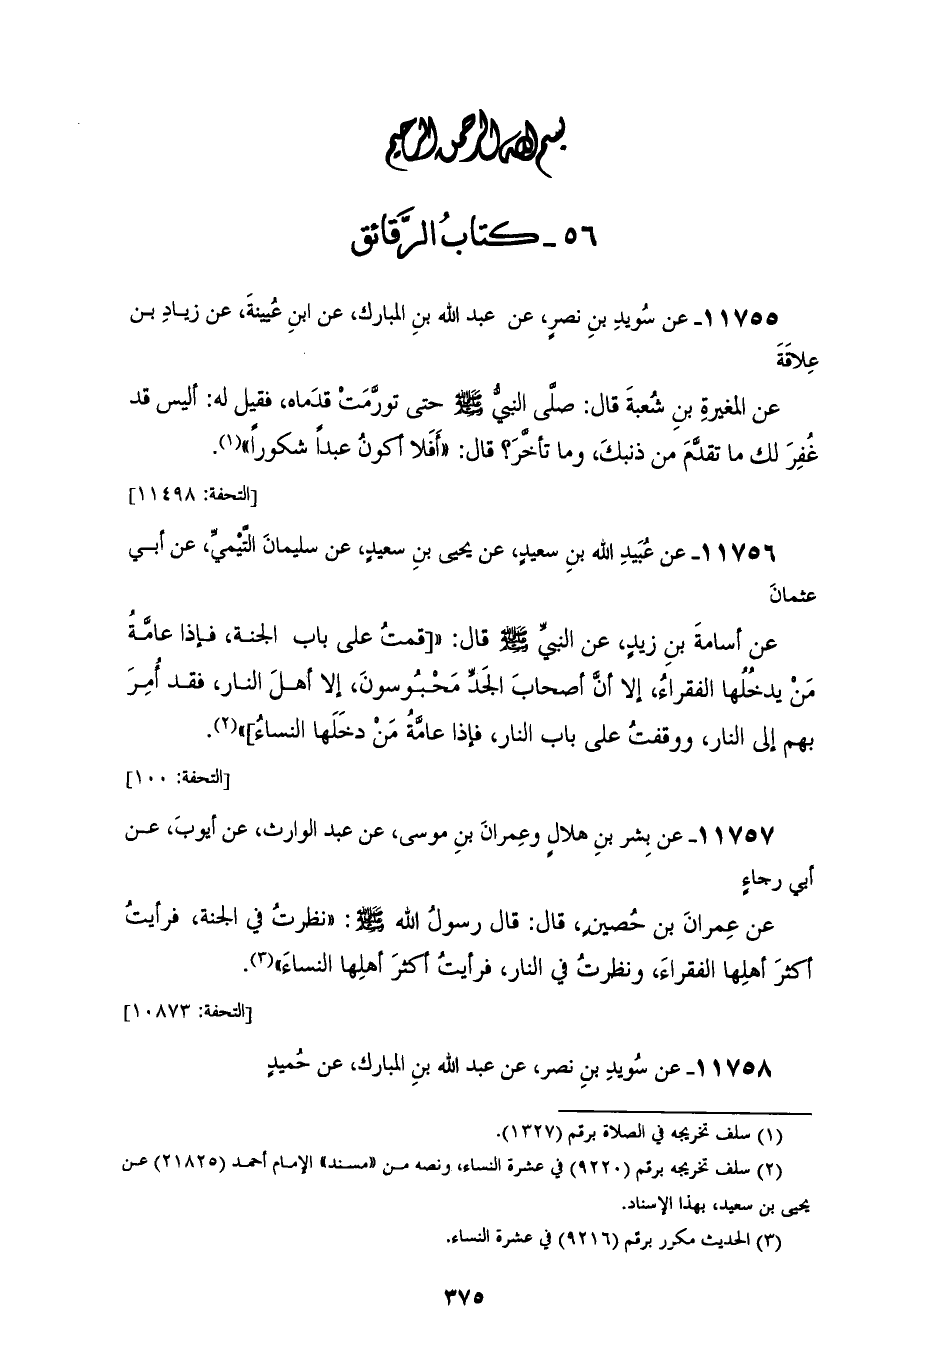 بسم الله الرحمن الرحيم
٥٦ - كتابُ الرَّقائق
١١٧٥٥- عن سُويدِ بنِ نصرٍ، عن عبد الله بنِ المبارك، عن ابنِ عُيينةَ، عن زيـادِ بـن
عِلاقَةَ
عن المغيرةِ بنِ شُعبةَ قال: صلَّى النبيُّ ﷺ حتى تورَّمَتْ قدَماه، فقيل له: أليس قد
غُفِرَ لك ما تقدَّمَ من ذنبكَ، وما تأخَّرَ؟ قال: «أَفَلا أكونُ عبداً شكوراً»(١).
[التحفة: ١١٤٩٨]
١١٧٥٦- عن عُبَيدِ الله بنِ سعيدٍ، عن يحيى بنِ سعيدٍ، عن سليمانَ التَّيْميِّ، عن أبـي
عثمانَ
عن أسامةَ بنِ زيدٍ، عن النبيِّ ﷺ قال: «[قمتُ على باب الجنـة، فـإذا عامَّـةُ
مَنْ يدخُلُها الفقراءُ، إلا أنَّ أصحابَ الجَدِّ مَحْبُوسونَ، إلا أهـلَ النـار، فقـد أُمِـرَ
بهم إلى النار، ووقفتُ على باب النار، فإذا عامَّةُ مَنْ دخَلَها النساءُ]»(٢).
[التحفة: ١٠٠]
١١٧٥٧- عن بِشر بنِ هلالٍ وعِمرانَ بنِ موسى، عن عبد الوارث، عن أيوبَ، عـن
أبي رجاءٍ
عن عِمرانَ بن حُصينٍ، قال: قال رسولُ الله ﷺ: «نظرتُ في الجنة، فرأيتُ
أكثرَ أهلِها الفقراءَ، ونظرتُ في النار، فرأيتُ أكثرَ أهلِها النساءَ»(٣).
[التحفة: ١٠٨٧٣]
١١٧٥٨- عن سُويدِ بنِ نصر، عن عبد الله بنِ المبارك، عن حُميدٍ
(١) سلف تخريجه في الصلاة برقم (١٣٢٧).
(٢) سلف تخريجه برقم (٩٢٢٠) في عشرة النساء، ونصه مـن «مسند» الإمـام أحمـد (٢١٨٢٥) عـن
يحيى بن سعيد، بهذا الإسناد.
(٣) الحديث مكرر برقم (٩٢١٦) في عشرة النساء.
٣٧٥